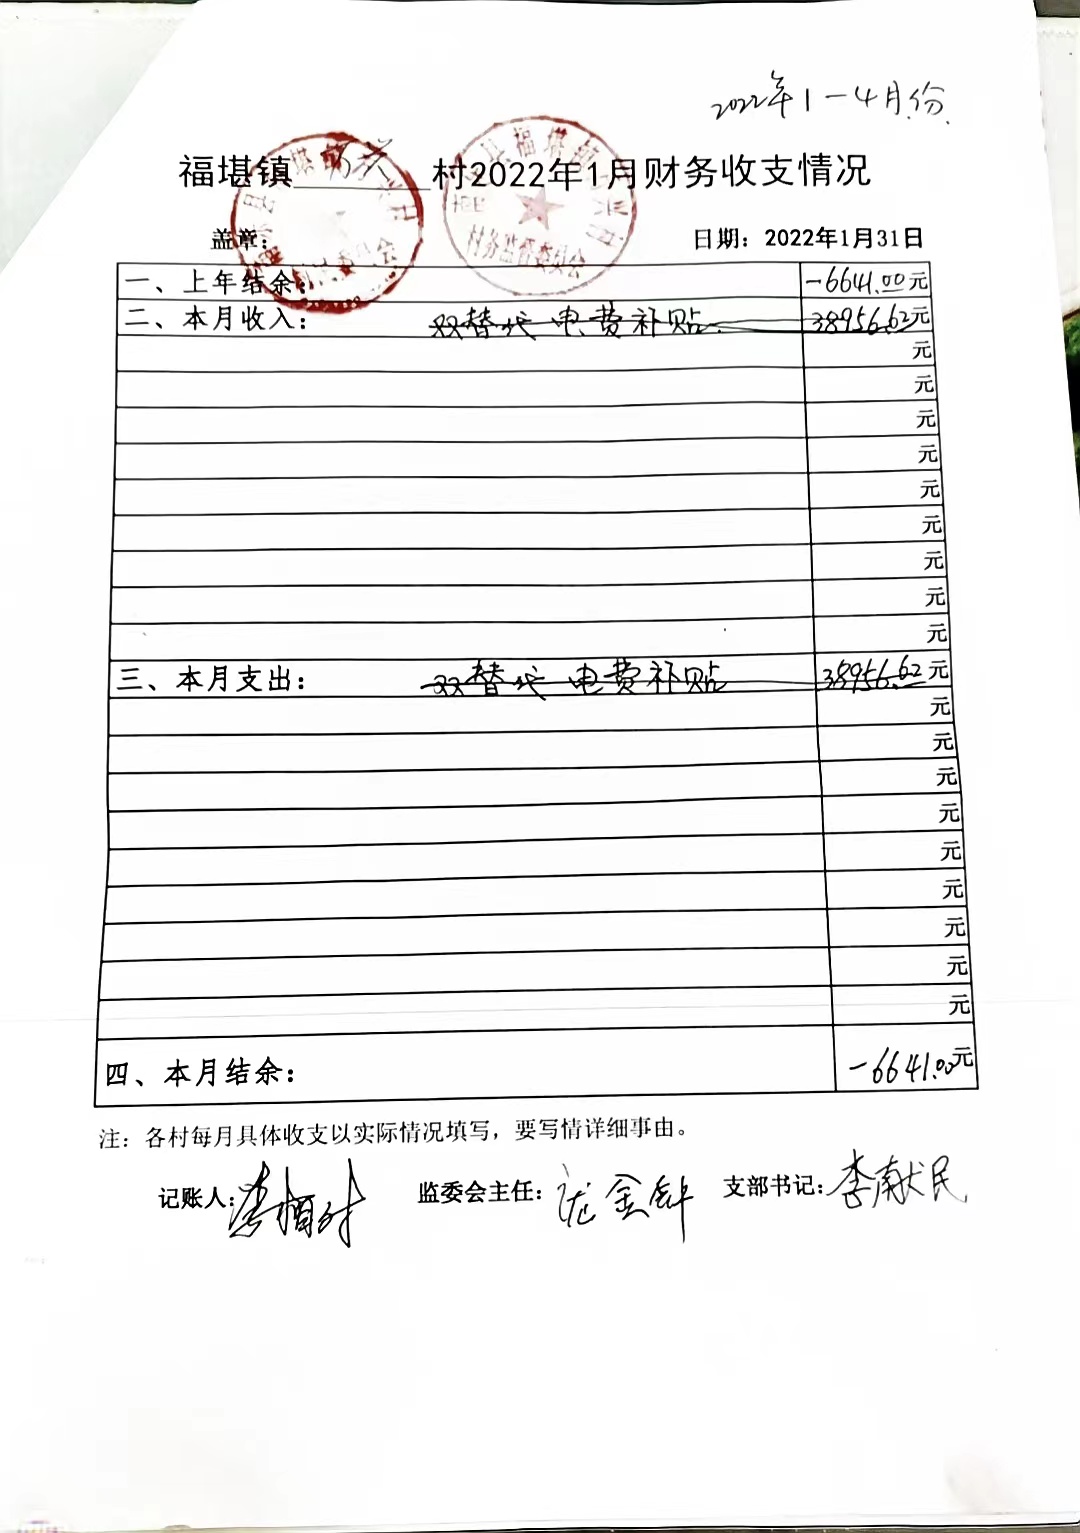 2022年1-4月份
福堪镇 村2022年1月财务收支情况
村务监督委员会
盖章： 日期：2022年1月31日
一、上年结余： -6641.00元
二、本月收入： 双替代电费补贴 38956.62元
元
元
元
元
元
元
元
元
元
三、本月支出： 双替代电费补贴 38956.62元
元
元
元
元
元
元
元
元
元
四、本月结余： -6641.00元
注：各村每月具体收支以实际情况填写，要写情详细事由。
记账人： 监委会主任： 金钟 支部书记：李献民